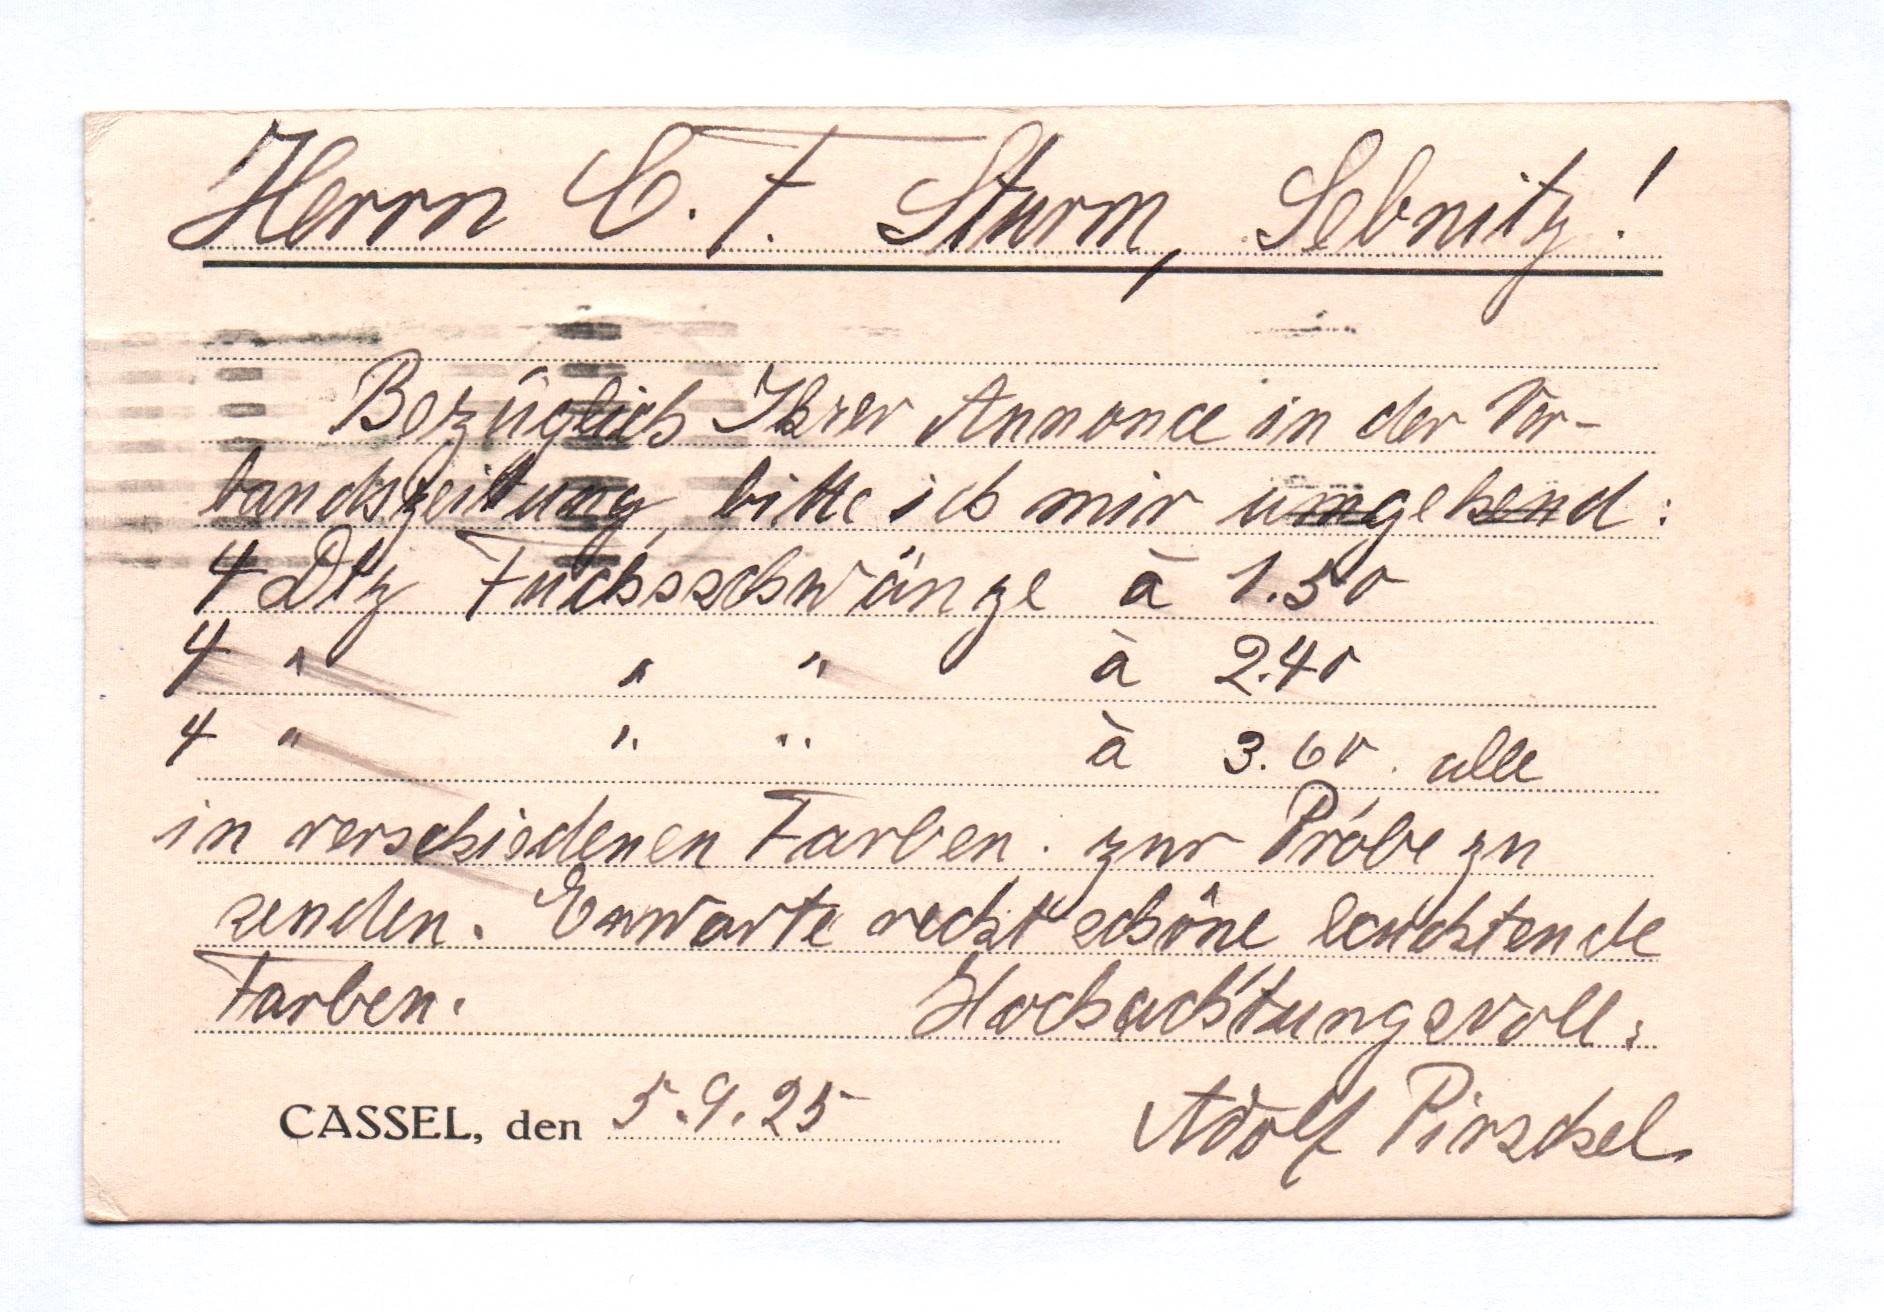 Herrn C. F. Sturm, Sebnitz!
Bezüglich Ihrer Annonce in der Ver-
bandszeitung, bitte ich mir umgehend:
4 Dtz Fuchsschwänze à 1.50
4 " " " à 2.40
4 " " " à 3.60. alle
in verschiedenen Farben. zur Probe zu
senden. Erwarte recht schöne leuchtende
Farben. Hochachtungsvoll:
CASSEL, den 5.9.25 Adolf Pirschel.